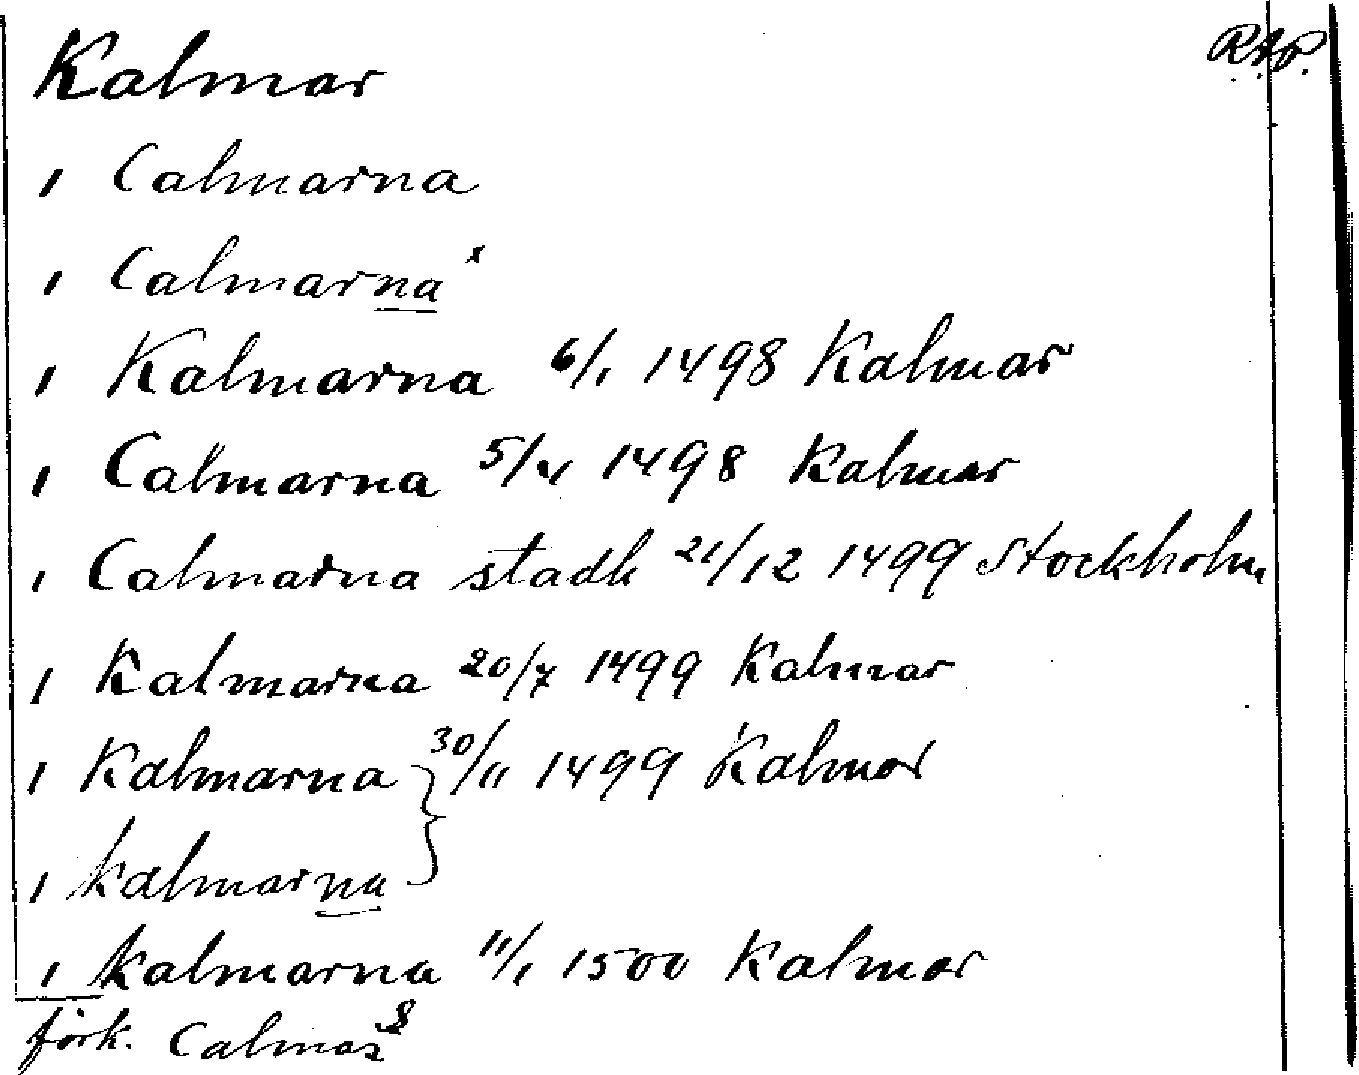 Kalmar R.A.P.
ı Calmarna
ı Calmarna x
ı Kalmarna 6/1 1498 Kalmar
ı Calmarna 5/4 1498 Kalmar
ı Calmarna stadh 21/12 1499 Stockholm
ı Kalmarna 20/7 1499 Kalmar
ı Kalmarna } 30/11 1499 Kalmar
ı kalmarna
ı kalmarna 11/1 1500 Kalmar
förk.